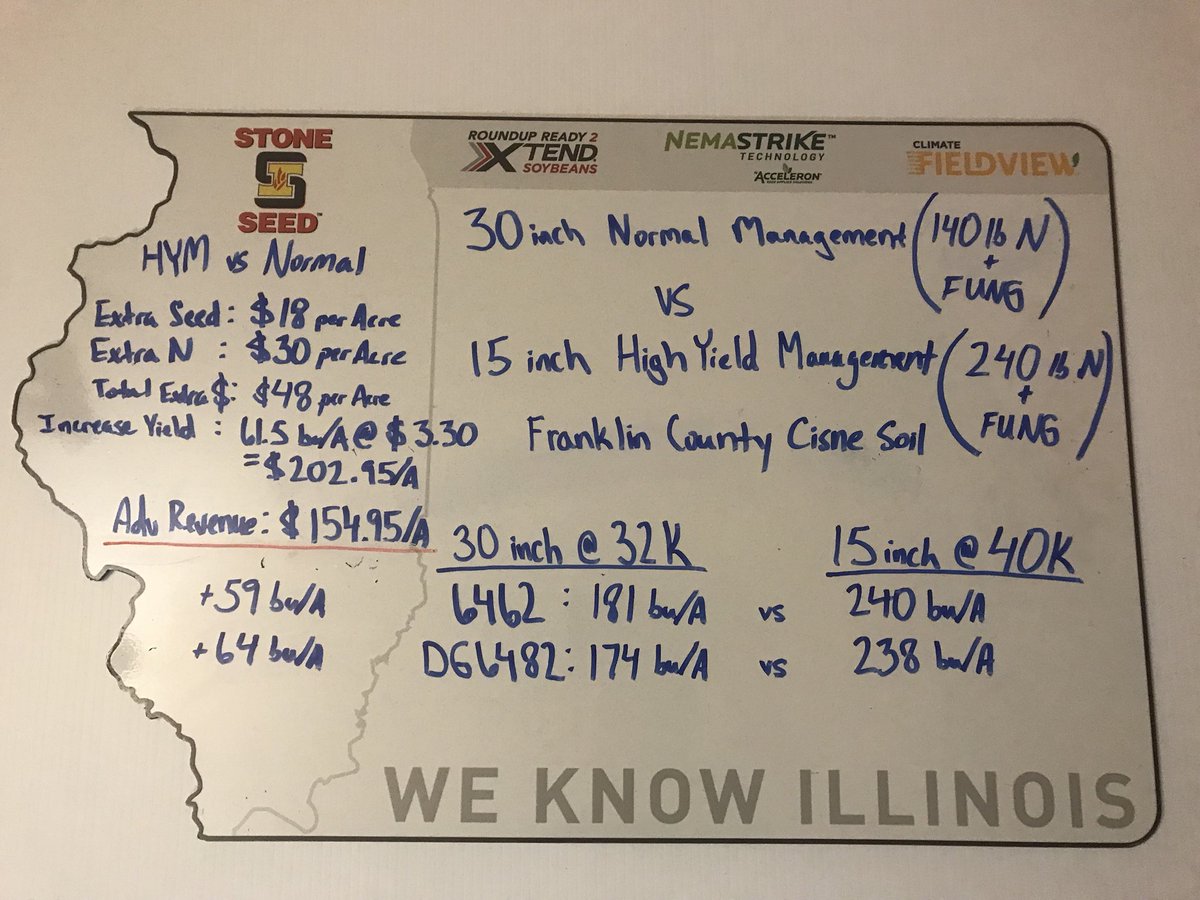 STONE
SEED™
ROUNDUP READY 2
XTEND
SOYBEANS
NEMASTRIKE™
TECHNOLOGY
ACCELERON®
CLIMATE
FIELDVIEW
HYM vs Normal
Extra Seed: $18 per Acre
Extra N : $30 per Acre
Total Extra $: $48 per Acre
Increase Yield : 61.5 bu/A @ $3.30
= $202.95/A
Adv Revenue: $154.95/A
+59 bu/A
+64 bu/A
30 inch Normal Management (140 lb N
+
FUNG)
VS
15 inch High Yield Management (240 lb N
+
FUNG)
Franklin County Cisne Soil
30 inch @ 32K 15 inch @ 40K
6462 : 181 bu/A vs 240 bu/A
DG6482: 174 bu/A vs 238 bu/A
WE KNOW ILLINOIS